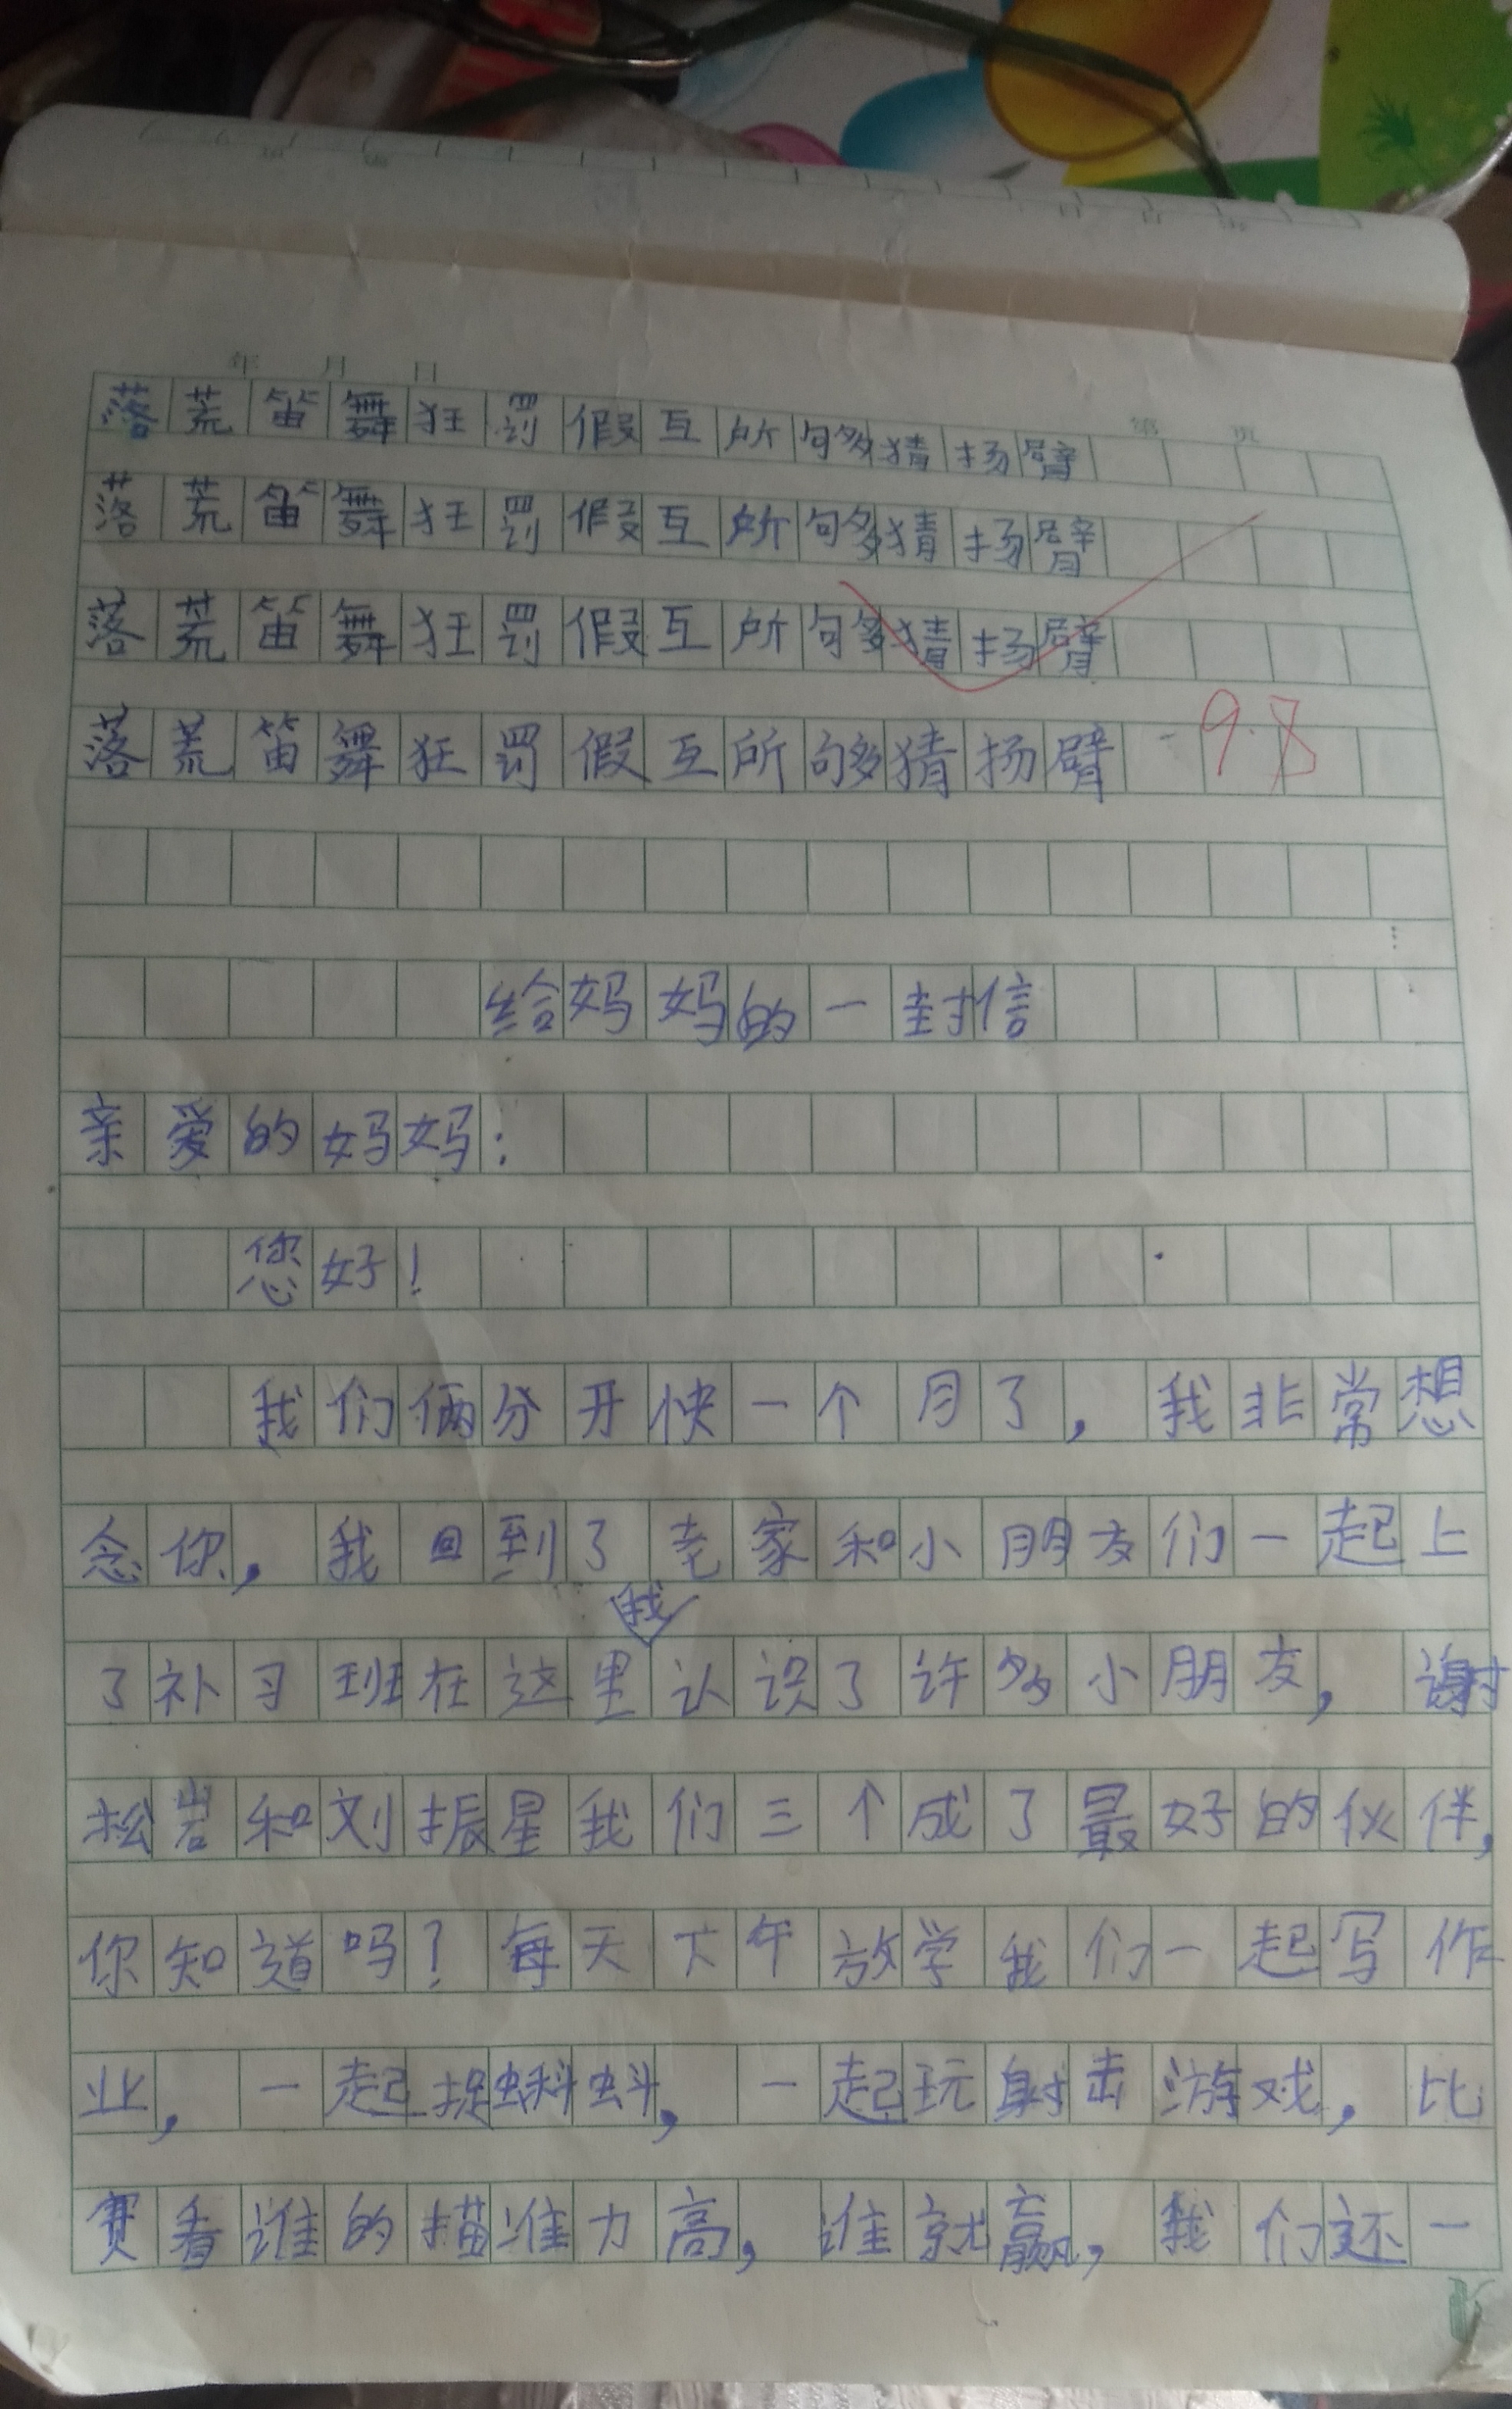 年 月 日
第 页
落荒笛舞狂罚假互所够猜扬臂
落荒笛舞狂罚假互所够猜扬臂
落荒笛舞狂罚假互所够猜扬臂
落荒笛舞狂罚假互所够猜扬臂
9.8
给妈妈的一封信
亲爱的妈妈:
您好!
我们俩分开快一个月了,我非常想
念你,我回到了老家和小朋友们一起上
我
了补习班在这里认识了许多小朋友,谢
松岩和刘振星我们三个成了最好的伙伴,
你知道吗?每天下午放学我们一起写作
业,一起捉蝌蚪,一起玩射击游戏,比
赛看谁的描准力高,谁就赢,我们还一